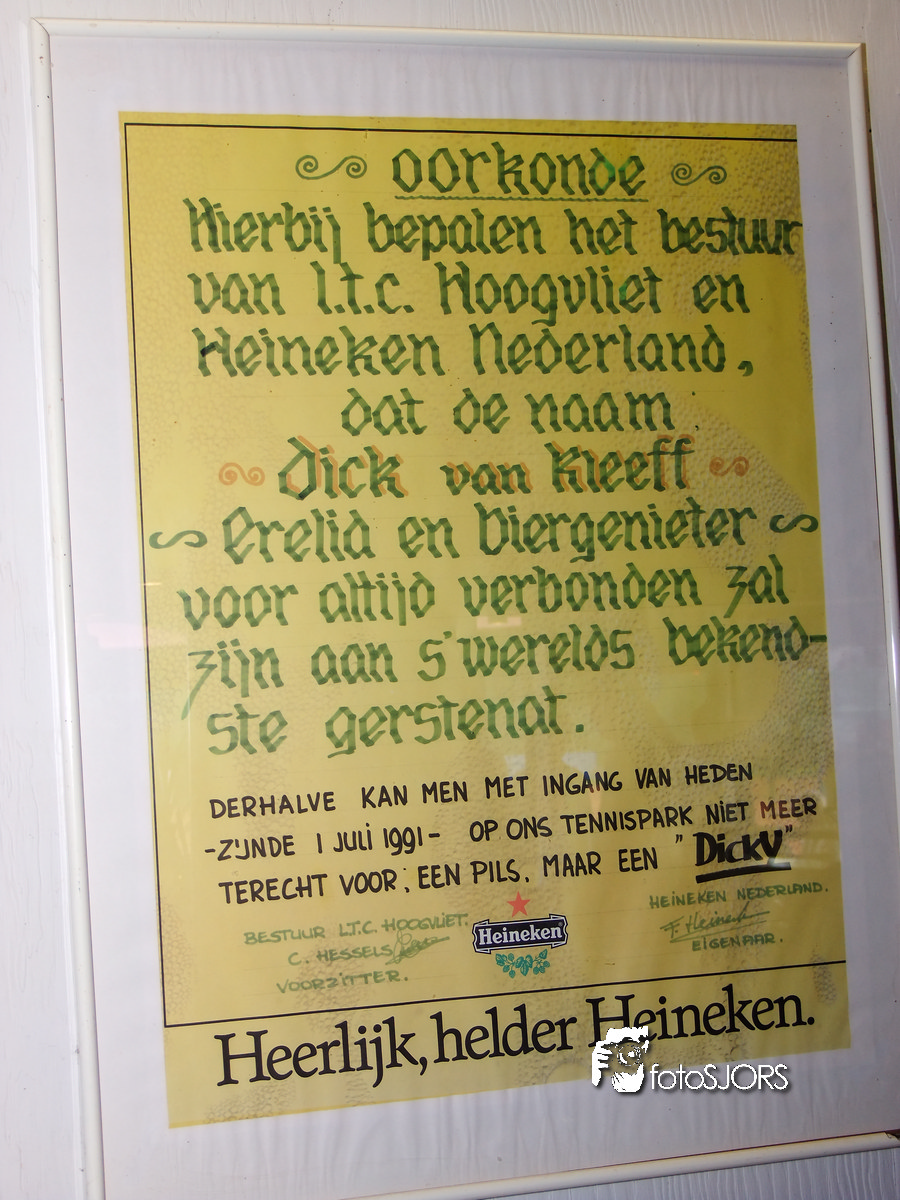 oorkonde
Hierbij bepalen het bestuur
van l.t.c. Hoogvliet en
Heineken Nederland,
dat de naam
Dick van Kleeff
Erelid en biergenieter
voor altijd verbonden zal
zijn aan s'werelds bekend-
ste gerstenat.
DERHALVE KAN MEN MET INGANG VAN HEDEN
-ZIJNDE 1 JULI 1991- OP ONS TENNISPARK NIET MEER
TERECHT VOOR, EEN PILS, MAAR EEN "Dicky"
BESTUUR L.T.C. HOOGVLIET.
C. HESSELS
VOORZITTER.
HEINEKEN NEDERLAND.
F. Heineken
EIGENAAR.
Heineken
Heerlijk, helder Heineken.
fotoSJORS